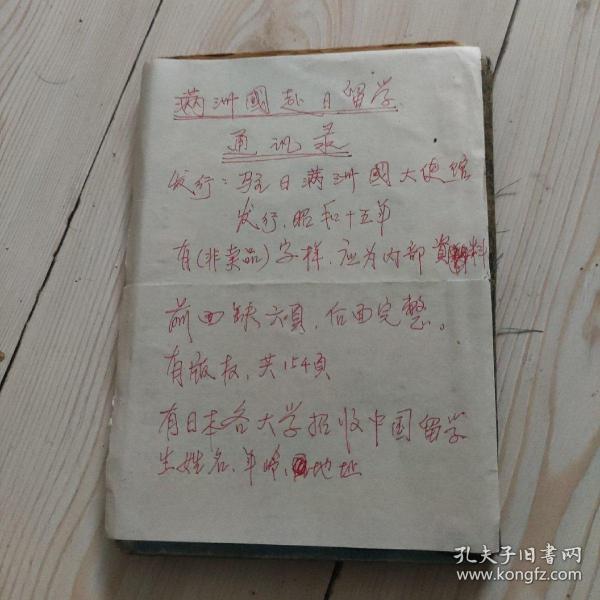 满洲國赴日留学
通讯录
发行：驻日满洲國大使馆
发行，昭和十五年
有(非卖品)字样，应为内部资料
前面缺六頁，后面完整。
有版权，共154頁
有日本各大学招收中国留学
生姓名、年龄、地址
孔夫子旧书网
www.kongfz.com